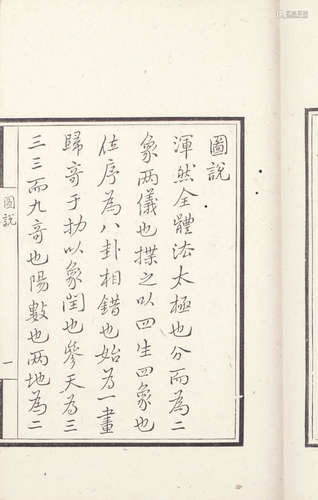 圖說
渾然全體法太極也分而為二
象两儀也揲之以四生四象也
位序為八卦相錯也始為一畫
歸奇于扐以象閏也參天為三
三三而九奇也陽數也两地為二
圖說
一